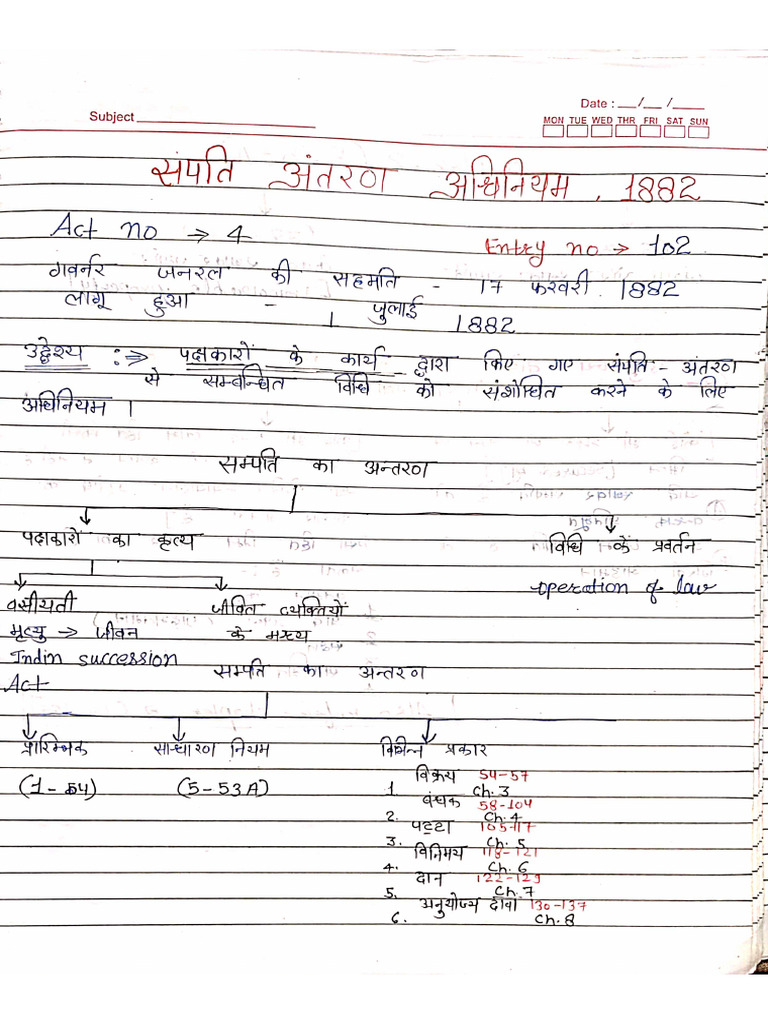 Date : __/__ /____
Subject
MON TUE WED THR FRI SAT SUN
संपति अंतरण अधिनियम , 1882
Act no → 4
Entry no → 102
गवर्नर जनरल की सहमति - 17 फरवरी 1882
लागू हुआ - 1 जुलाई 1882
उद्देश्य :⇒ पक्षकारों के कार्य द्वारा किए गए संपति - अंतरण
से सम्बन्धित विधि को संशोधित करने के लिए
अधिनियम ।
सम्पति का अन्तरण
पक्षकारों का कृत्य
विधि के प्रवर्तन
operation of law
वसीयती
जीवित व्यक्तियों
मृत्यु → जीवन
के मध्य
Indin succession
Act
सम्पति का अन्तरण
प्रारम्भिक
साधारण नियम
विभिन्न प्रकार
(1 - 4)
(5 - 53A)
1 विक्रय 54-57
Ch. 3
2. बंधक 58-104
Ch. 4
3. पट्टा 105-117
Ch. 5
4. विनिमय 118-121
Ch. 6
5. दान 122-129
Ch. 7
6. अनुयोज्य दावा 130-137
Ch. 8